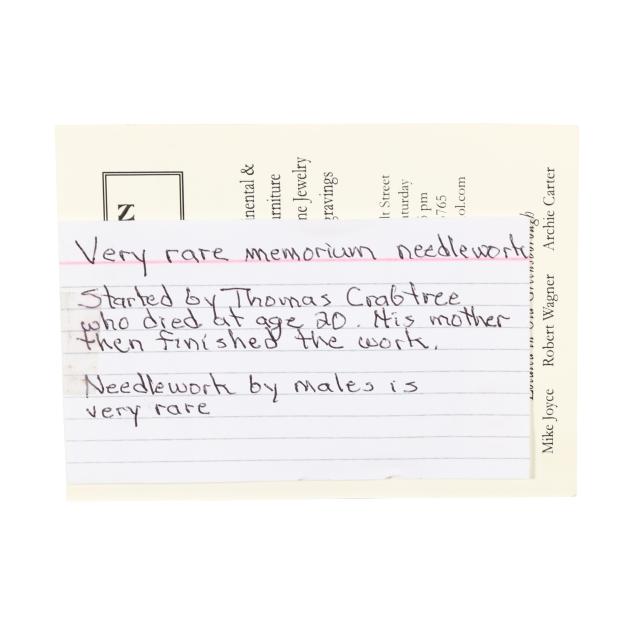 Very rare memorium needlework
Started by Thomas Crabtree
who died at age 20. His mother
then finished the work.
Needlework by males is
very rare
N
nental &
urniture
ne Jewelry
gravings
lt Street
aturday
pm
765
ol.com
Located in Old Greensborough
Mike Joyce Robert Wagner Archie Carter